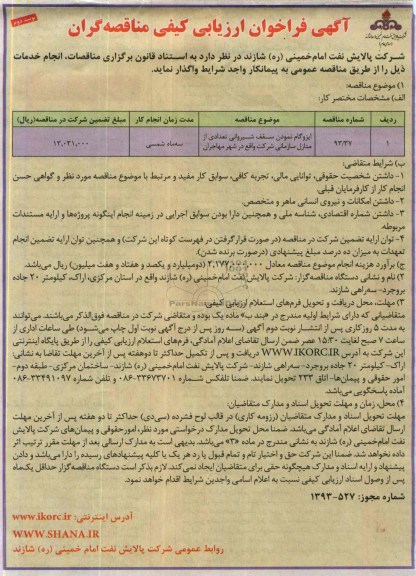 نوبت دوم
آگهی فراخوان ارزیابی کیفی مناقصه‌گران
شرکت پالایش نفت امام‌خمینی (ره) شازند در نظر دارد به استناد قانون برگزاری مناقصات، انجام خدمات
ذیل را از طریق مناقصه عمومی به پیمانکار واجد شرایط واگذار نماید.
۱) موضوع مناقصه:
الف) مشخصات مختصر کار:
ردیف شماره مناقصه موضوع مناقصه مدت زمان انجام کار مبلغ تضمین شرکت در مناقصه(ریال)
۱ ۹۳/۳۷ ایزوگام نمودن سقف شیروانی تعدادی از منازل سازمانی شرکت واقع در شهر مهاجران سه‌ماه شمسی
ب) شرایط متقاضی:
۱- داشتن شخصیت حقوقی، توانایی مالی، تجربه کافی، سوابق کار مفید و مرتبط با موضوع مناقصه مورد نظر و گواهی حسن
انجام کار از کارفرمایان قبلی.
۲- داشتن امکانات و نیروی انسانی ماهر و متخصص.
۳- داشتن شماره اقتصادی، شناسه ملی و همچنین دارا بودن سوابق اجرایی در زمینه انجام اینگونه پروژه‌ها و ارایه مستندات
مربوطه.
۴- توان ارایه تضمین شرکت در مناقصه (در صورت قرارگرفتن در فهرست کوتاه این شرکت) و همچنین توان ارایه تضمین انجام
تعهدات به میزان ده درصد مبلغ پیشنهادی (درصورت برنده شدن).
ج) برآورد هزینه انجام موضوع مناقصه معادل (دومیلیارد و یکصد و هفتاد و هفت میلیون) ریال می‌باشد.
۲) نام و نشانی دستگاه مناقصه‌گزار: شرکت پالایش نفت امام‌خمینی (ره) شازند واقع در استان مرکزی، اراک، کیلومتر ۲۰ جاده
بروجرد- سه‌راهی شازند.
۳) مهلت، محل دریافت و تحویل فرم‌های استعلام ارزیابی کیفی:
متقاضیانی که دارای شرایط اولیه مندرج در «بند ب» ماده یک بوده و تقاضای شرکت در مناقصه فوق‌الذکر می‌باشند، می‌توانند
به مدت ۵ روزکاری پس از انتشار نوبت دوم آگهی (سه روز پس از درج آگهی نوبت اول چاپ می‌شود) طی ساعات اداری از
ساعت ۷ صبح لغایت ۱۵:۳۰ عصر ضمن ارسال تقاضای اعلام آمادگی، فرم‌های استعلام ارزیابی کیفی را از طریق پایگاه اینترنتی
این شرکت به آدرس WWW.IKORC.IR دریافت و پس از تکمیل حداکثر تا دوهفته پس از آخرین مهلت تقاضا به نشانی:
اراک- کیلومتر ۲۰ جاده بروجرد- سه‌راهی شازند- شرکت پالایش نفت امام‌خمینی (ره) شازند- ساختمان مرکزی- طبقه دوم-
امور حقوقی و پیمان‌ها- اتاق ۲۳۳ تحویل نمایند. ضمنا تلفکس شماره ۳۳۶۷۳۷۰۱-۰۸۶ و تلفن شماره ۳۳۴۹۱۰۹۷-۰۸۶
آماده پاسخگویی می‌باشد.
۴) محل زمان و مهلت تحویل اسناد و مدارک متقاضیان:
مهلت تحویل اسناد و مدارک متقاضیان (رزومه کاری) در قالب لوح فشرده (سی‌دی) حداکثر تا دو هفته پس از آخرین مهلت
ارسال تقاضای اعلام آمادگی می‌باشد. ضمنا محل تحویل مدارک درخواستی مورد نظر، امورحقوقی و پیمان‌های شرکت پالایش
نفت امام‌خمینی (ره) شازند به نشانی مندرج در ماده «۳» می‌باشد. بدیهی است به مدارک ارسالی بعد از مهلت مقرر ترتیب اثر
داده نخواهد شد. ضمنا این شرکت حق و اختیار تام و تمام قبول یا رد هر یک یا کلیه پیشنهادهای رسیده را دارا می‌باشد و دادن
پیشنهاد و ارایه اسناد و مدارک هیچگونه حقی برای متقاضیان ایجاد نمی‌کند. لازم بذکر است دستگاه مناقصه‌گزار حداقل یک‌ماه
پس از وصول اسناد ارزیابی کیفی نسبت به اعلام اسامی واجدین شرایط اقدام خواهد نمود.
شماره مجوز: ۵۲۷-۱۳۹۳
آدرس اینترنتی: www.ikorc.ir
WWW.SHANA.IR
روابط عمومی شرکت پالایش نفت امام خمینی (ره) شازند